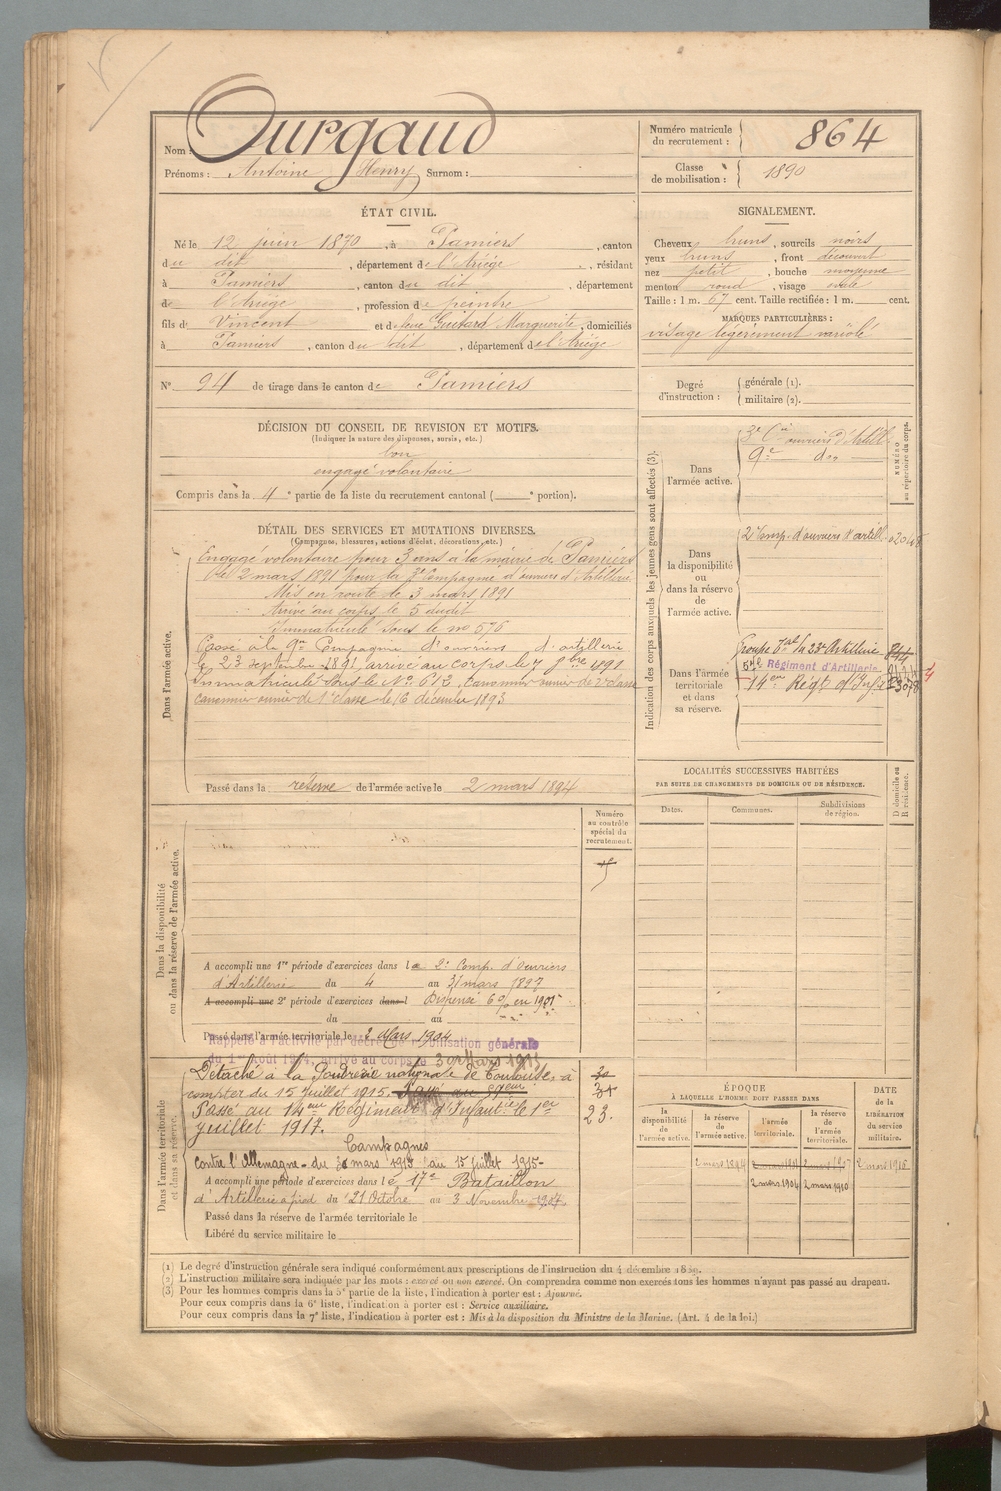 Nom : Ourgaud
Prénoms : Antoine Henry Surnom :
Numéro matricule du recrutement : 864
Classe de mobilisation : 1890
ÉTAT CIVIL.
Né le 12 juin 1870, à Pamiers, canton
du dit, département de l'Ariège, résidant
à Pamiers, canton du dit, département
de l'Ariège, profession de peintre
fils de Vincent et de feue Guitard Marguerite, domiciliés
à Pamiers, canton du dit, département de l'Ariège
N° 94 de tirage dans le canton de Pamiers
SIGNALEMENT.
Cheveux bruns, sourcils noirs
yeux bruns, front découvert
nez petit, bouche moyenne
menton rond, visage ovale
Taille : 1 m. 67 cent. Taille rectifiée : 1 m. cent.
MARQUES PARTICULIÈRES :
visage légèrement variolé
Degré d'instruction : générale (1).
militaire (2).
DÉCISION DU CONSEIL DE REVISION ET MOTIFS.
(Indiquer la nature des dispenses, sursis, etc.)
bon
engagé volontaire
Compris dans la 4e partie de la liste du recrutement cantonal ( e portion).
DÉTAIL DES SERVICES ET MUTATIONS DIVERSES.
(Campagnes, blessures, actions d'éclat, décorations, etc.)
Dans l'armée active.
Engagé volontaire pour 3 ans à la mairie de Pamiers
le 2 mars 1891 pour la 3e Compagnie d'ouvriers d'Artillerie
Mis en route le 3 mars 1891
Arrivé au corps le 5 dudit
Immatriculé sous le no 576
Passé à la 9e Compagnie d'ouvriers d'artillerie
le 23 septembre 1891, arrivé au corps le 7 8bre 1891
Immatriculé sous le No 612, canonnier ouvrier de 2e classe
canonnier ouvrier de 1e classe le 16 décembre 1893
Passé dans la réserve de l'armée active le 2 mars 1894
Indication des corps auxquels les jeunes gens sont affectés (3).
NUMÉRO au répertoire du corps.
Dans l'armée active.
3e Cie ouvriers d'Artill.
9e do
Dans la disponibilité ou dans la réserve de l'armée active.
2e Comp. d'ouvriers d'artill.
Dans l'armée territoriale et dans sa réserve.
Groupe Tal du 23e Artillerie 844
Régiment d'Artillerie
14e Régt d'Infie
LOCALITÉS SUCCESSIVES HABITÉES
PAR SUITE DE CHANGEMENTS DE DOMICILE OU DE RÉSIDENCE.
Dates. Communes. Subdivisions de région. D domicile ou R résidence.
Dans la disponibilité ou dans la réserve de l'armée active.
Numéro au contrôle spécial du recrutement.
A accompli une 1re période d'exercices dans la 2e Comp. d'Ouvriers
d'Artillerie du 4 au 31 mars 1897
A accompli une 2e période d'exercices dans l Dispensé 6 % en 1901
du au
Passé dans l'armée territoriale le 2 Mars 1904
Rappelé à l'activité par décret de mobilisation générale
du 1er Août 1914, arrivé au corps le 30 Mars 1915
Dans l'armée territoriale et dans sa réserve.
Détaché à la Poudrerie nationale de Toulouse, à
compter du 15 juillet 1915.
Passé au 14eme Régiment d'Infanterie le 1er
juillet 1917. 23.
Campagnes
Contre l'Allemagne - du 30 mars 1915 au 15 juillet 1915 -
A accompli une période d'exercices dans le 17e Bataillon
d'Artillerie à pied du 21 Octobre au 3 Novembre 1904
Passé dans la réserve de l'armée territoriale le
Libéré du service militaire le
ÉPOQUE
À LAQUELLE L'HOMME DOIT PASSER DANS
DATE de la LIBÉRATION du service militaire.
la disponibilité de l'armée active. la réserve de l'armée active. l'armée territoriale. la réserve de l'armée territoriale.
2 mars 1894
2 mars 1904 2 mars 1910
(1) Le degré d'instruction générale sera indiqué conformément aux prescriptions de l'instruction du 4 décembre 1889.
(2) L'instruction militaire sera indiquée par les mots : exercé ou non exercé. On comprendra comme non exercés tous les hommes n'ayant pas passé au drapeau.
(3) Pour les hommes compris dans la 5e partie de la liste, l'indication à porter est : Ajourné.
Pour ceux compris dans la 6e liste, l'indication à porter est : Service auxiliaire.
Pour ceux compris dans la 7e liste, l'indication à porter est : Mis à la disposition du Ministre de la Marine. (Art. 4 de la loi.)